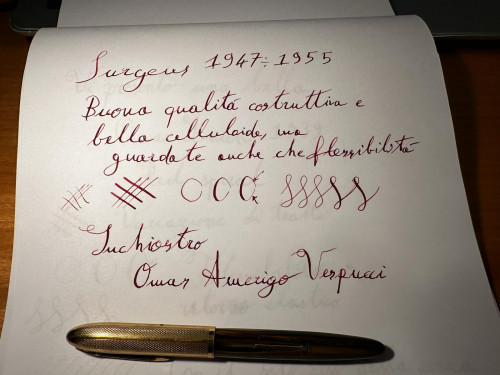 Surgens 1947÷1955
Buona qualità costruttiva e
bella celluloide, ma
guardate anche che flessibilità
Inchiostro
Omas Amerigo Vespucci